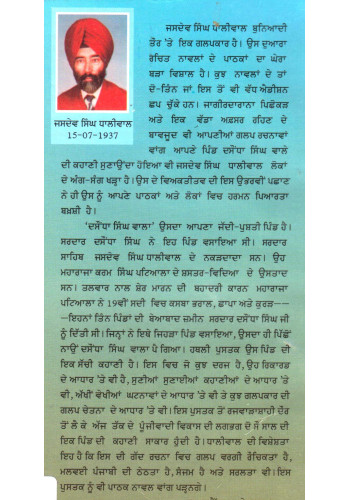 ਜਸਦੇਵ ਸਿੰਘ ਧਾਲੀਵਾਲ ਬੁਨਿਆਦੀ
ਤੌਰ 'ਤੇ ਇਕ ਗਲਪਕਾਰ ਹੈ। ਉਸ ਦੁਆਰਾ
ਰੇਚਿਤ ਨਾਵਲਾਂ ਦੇ ਪਾਠਕਾਂ ਦਾ ਘੇਰਾ
ਬੜਾ ਵਿਸ਼ਾਲ ਹੈ। ਕੁਝ ਨਾਵਲਾਂ ਦੇ ਤਾਂ
ਦੋ-ਤਿੰਨ ਜਾਂ ਇਸ ਤੋਂ ਵੀ ਵੱਧ ਐਡੀਸ਼ਨ
ਛਪ ਚੁੱਕੇ ਹਨ। ਜਾਗੀਰਦਾਰਾਨਾ ਪਿਛੋਕੜ
ਅਤੇ ਇਕ ਵੱਡਾ ਅਫ਼ਸਰ ਰਹਿਣ ਦੇ
ਬਾਵਜੂਦ ਵੀ ਆਪਣੀਆਂ ਗਲਪ ਰਚਨਾਵਾਂ
ਵਾਂਗ ਆਪਣੇ ਪਿੰਡ ਦਸੌਂਧਾ ਸਿੰਘ ਵਾਲੇ
ਦੀ ਕਹਾਣੀ ਸੁਣਾਉਂਦਾ ਹੋਇਆ ਵੀ ਜਸਦੇਵ ਸਿੰਘ ਧਾਲੀਵਾਲ ਲੋਕਾਂ
ਦੇ ਅੰਗ-ਸੰਗ ਖੜ੍ਹਾ ਹੈ। ਉਸ ਦੇ ਵਿਅਕਤੀਤਵ ਦੀ ਇਸ ਉਭਰਵੀਂ ਪਛਾਣ
ਨੇ ਹੀ ਉਸ ਨੂੰ ਆਪਣੇ ਪਾਠਕਾਂ ਅਤੇ ਲੋਕਾਂ ਵਿਚ ਹਰਮਨ ਪਿਆਰਤਾ
ਬਖ਼ਸ਼ੀ ਹੈ।
ਜਸਦੇਵ ਸਿੰਘ ਧਾਲੀਵਾਲ
15-07-1937
'ਦਸੌਂਧਾ ਸਿੰਘ ਵਾਲਾ' ਉਸਦਾ ਆਪਣਾ ਜੱਦੀ-ਪੁਸ਼ਤੀ ਪਿੰਡ ਹੈ।
ਸਰਦਾਰ ਦਸੌਂਧਾ ਸਿੰਘ ਨੇ ਇਹ ਪਿੰਡ ਵਸਾਇਆ ਸੀ। ਸਰਦਾਰ
ਸਾਹਿਬ ਜਸਦੇਵ ਸਿੰਘ ਧਾਲੀਵਾਲ ਦੇ ਨਕੜਦਾਦਾ ਸਨ। ਉਹ
ਮਹਾਰਾਜਾ ਕਰਮ ਸਿੰਘ ਪਟਿਆਲਾ ਦੇ ਸ਼ਸਤਰ-ਵਿਦਿਆ ਦੇ ਉਸਤਾਦ
ਸਨ। ਤਲਵਾਰ ਨਾਲ ਸ਼ੇਰ ਮਾਰਨ ਦੀ ਬਹਾਦਰੀ ਕਾਰਨ ਮਹਾਰਾਜਾ
ਪਟਿਆਲਾ ਨੇ 19ਵੀਂ ਸਦੀ ਵਿਚ ਕਸਬਾ ਭਰਾਲ, ਛਾਪਾ ਅਤੇ ਕੁਰੜ——
—ਇਹਨਾਂ ਤਿੰਨ ਪਿੰਡਾਂ ਦੀ ਬੇਆਬਾਦ ਜ਼ਮੀਨ ਸਰਦਾਰ ਦਸੌਂਧਾ ਸਿੰਘ ਜੀ
ਨੂੰ ਦਿੱਤੀ ਸੀ। ਜਿਨ੍ਹਾਂ ਨੇ ਇਥੇ ਜਿਹੜਾ ਪਿੰਡ ਵਸਾਇਆ, ਉਸਦਾ ਹੀ ਪਿੱਛੋਂ
ਨਾਉਂ ਦਸੌਂਧਾ ਸਿੰਘ ਵਾਲਾ ਪੈ ਗਿਆ। ਹਥਲੀ ਪੁਸਤਕ ਉਸ ਪਿੰਡ ਦੀ
ਇਕ ਸੱਚੀ ਕਹਾਣੀ ਹੈ। ਇਸ ਵਿਚ ਜੋ ਕੁਝ ਦਰਜ ਹੈ, ਉਹ ਰਿਕਾਰਡ
ਦੇ ਆਧਾਰ 'ਤੇ ਵੀ ਹੈ, ਸੁਣੀਆਂ ਸੁਣਾਈਆਂ ਕਹਾਣੀਆਂ ਦੇ ਆਧਾਰ 'ਤੇ
ਵੀ, ਅੱਖੀਂ ਵੇਖੀਆਂ ਘਟਨਾਵਾਂ ਦੇ ਆਧਾਰ 'ਤੇ ਵੀ ਅਤੇ ਕੁਝ ਗਲਪਕਾਰ ਦੀ
ਗਲਪ ਚੇਤਨਾ ਦੇ ਆਧਾਰ 'ਤੇ ਵੀ। ਇਸ ਪੁਸਤਕ ਤੋਂ ਰਜਵਾੜਾਸ਼ਾਹੀ ਦੌਰ
ਤੋਂ ਲੈ ਕੇ ਅੱਜ ਤੱਕ ਦੇ ਪੂੰਜੀਵਾਦੀ ਵਿਕਾਸ ਦੀ ਲਗਭਗ ਦੋ ਸੌ ਸਾਲ ਦੀ
ਇਕ ਪਿੰਡ ਦੀ ਕਹਾਣੀ ਸਾਕਾਰ ਹੁੰਦੀ ਹੈ। ਧਾਲੀਵਾਲ ਦੀ ਵਿਸ਼ੇਸ਼ਤਾ
ਇਹ ਹੈ ਕਿ ਇਸ ਦੀ ਗੱਦ ਰਚਨਾ ਵਿਚ ਗਲਪ ਵਰਗੀ ਰੌਚਿਕਤਾ ਹੈ,
ਮਲਵਈ ਪੰਜਾਬੀ ਦੀ ਠੇਠਤਾ ਹੈ, ਸੰਜਮ ਹੈ ਅਤੇ ਸਰਲਤਾ ਵੀ। ਇਸ
ਪੁਸਤਕ ਨੂੰ ਵੀ ਪਾਠਕ ਨਾਵਲ ਵਾਂਗ ਪੜ੍ਹਨਗੇ।